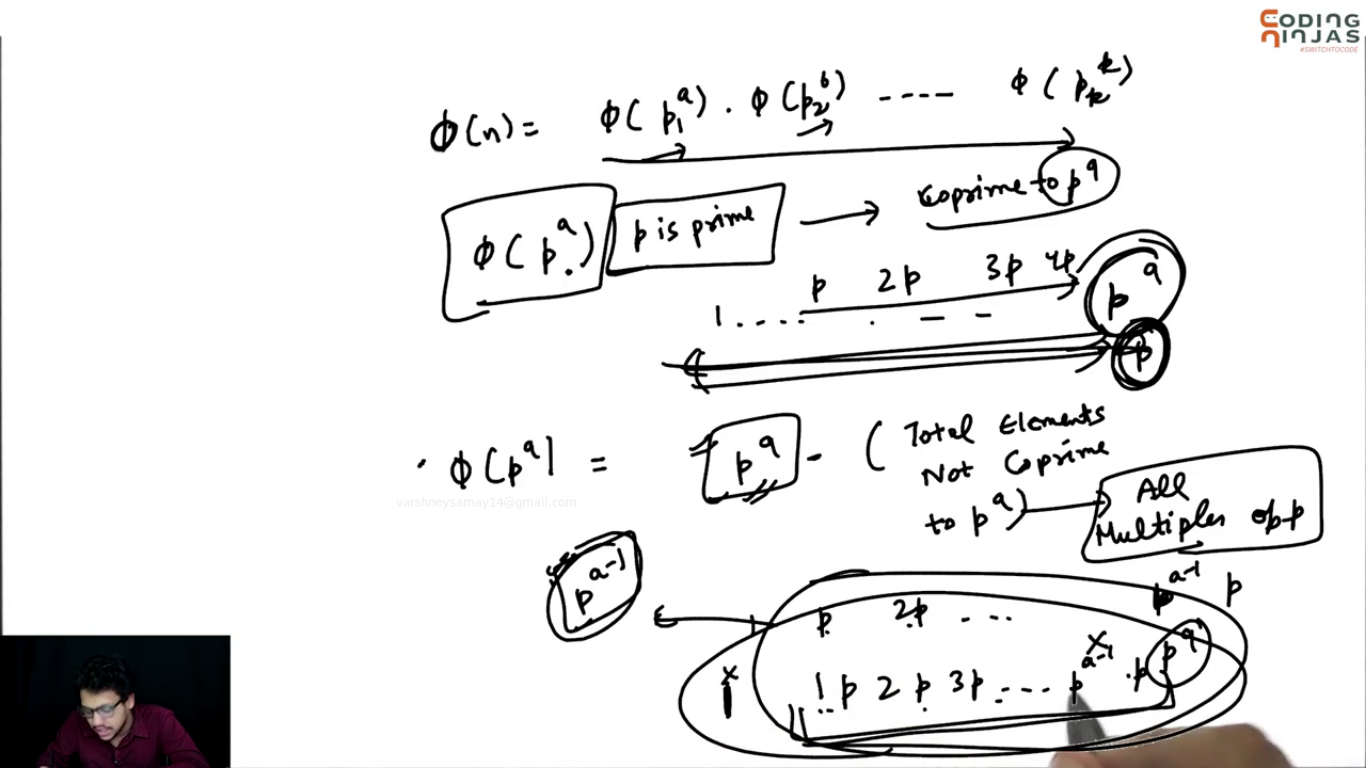 CODING NINJAS
#SWITCHTOCODE
ϕ(n) = ϕ(p₁ᵃ) . ϕ(p₂ᵇ) ---- ϕ(pₖᵏ)
ϕ(pᵃ) p is prime → coprime to pᵃ
p 2p 3p 4p pᵃ
1 . . . . . — —
p
. ϕ(pᵃ) = pᵃ - (Total Elements
Not Coprime
to pᵃ) → All
Multiples of p
varshneysamay14@gmail.com
pᵃ⁻¹
p 2p ... pᵃ⁻¹ p
1 1p 2p 3p .... pᵃ⁻¹.p pᵃ